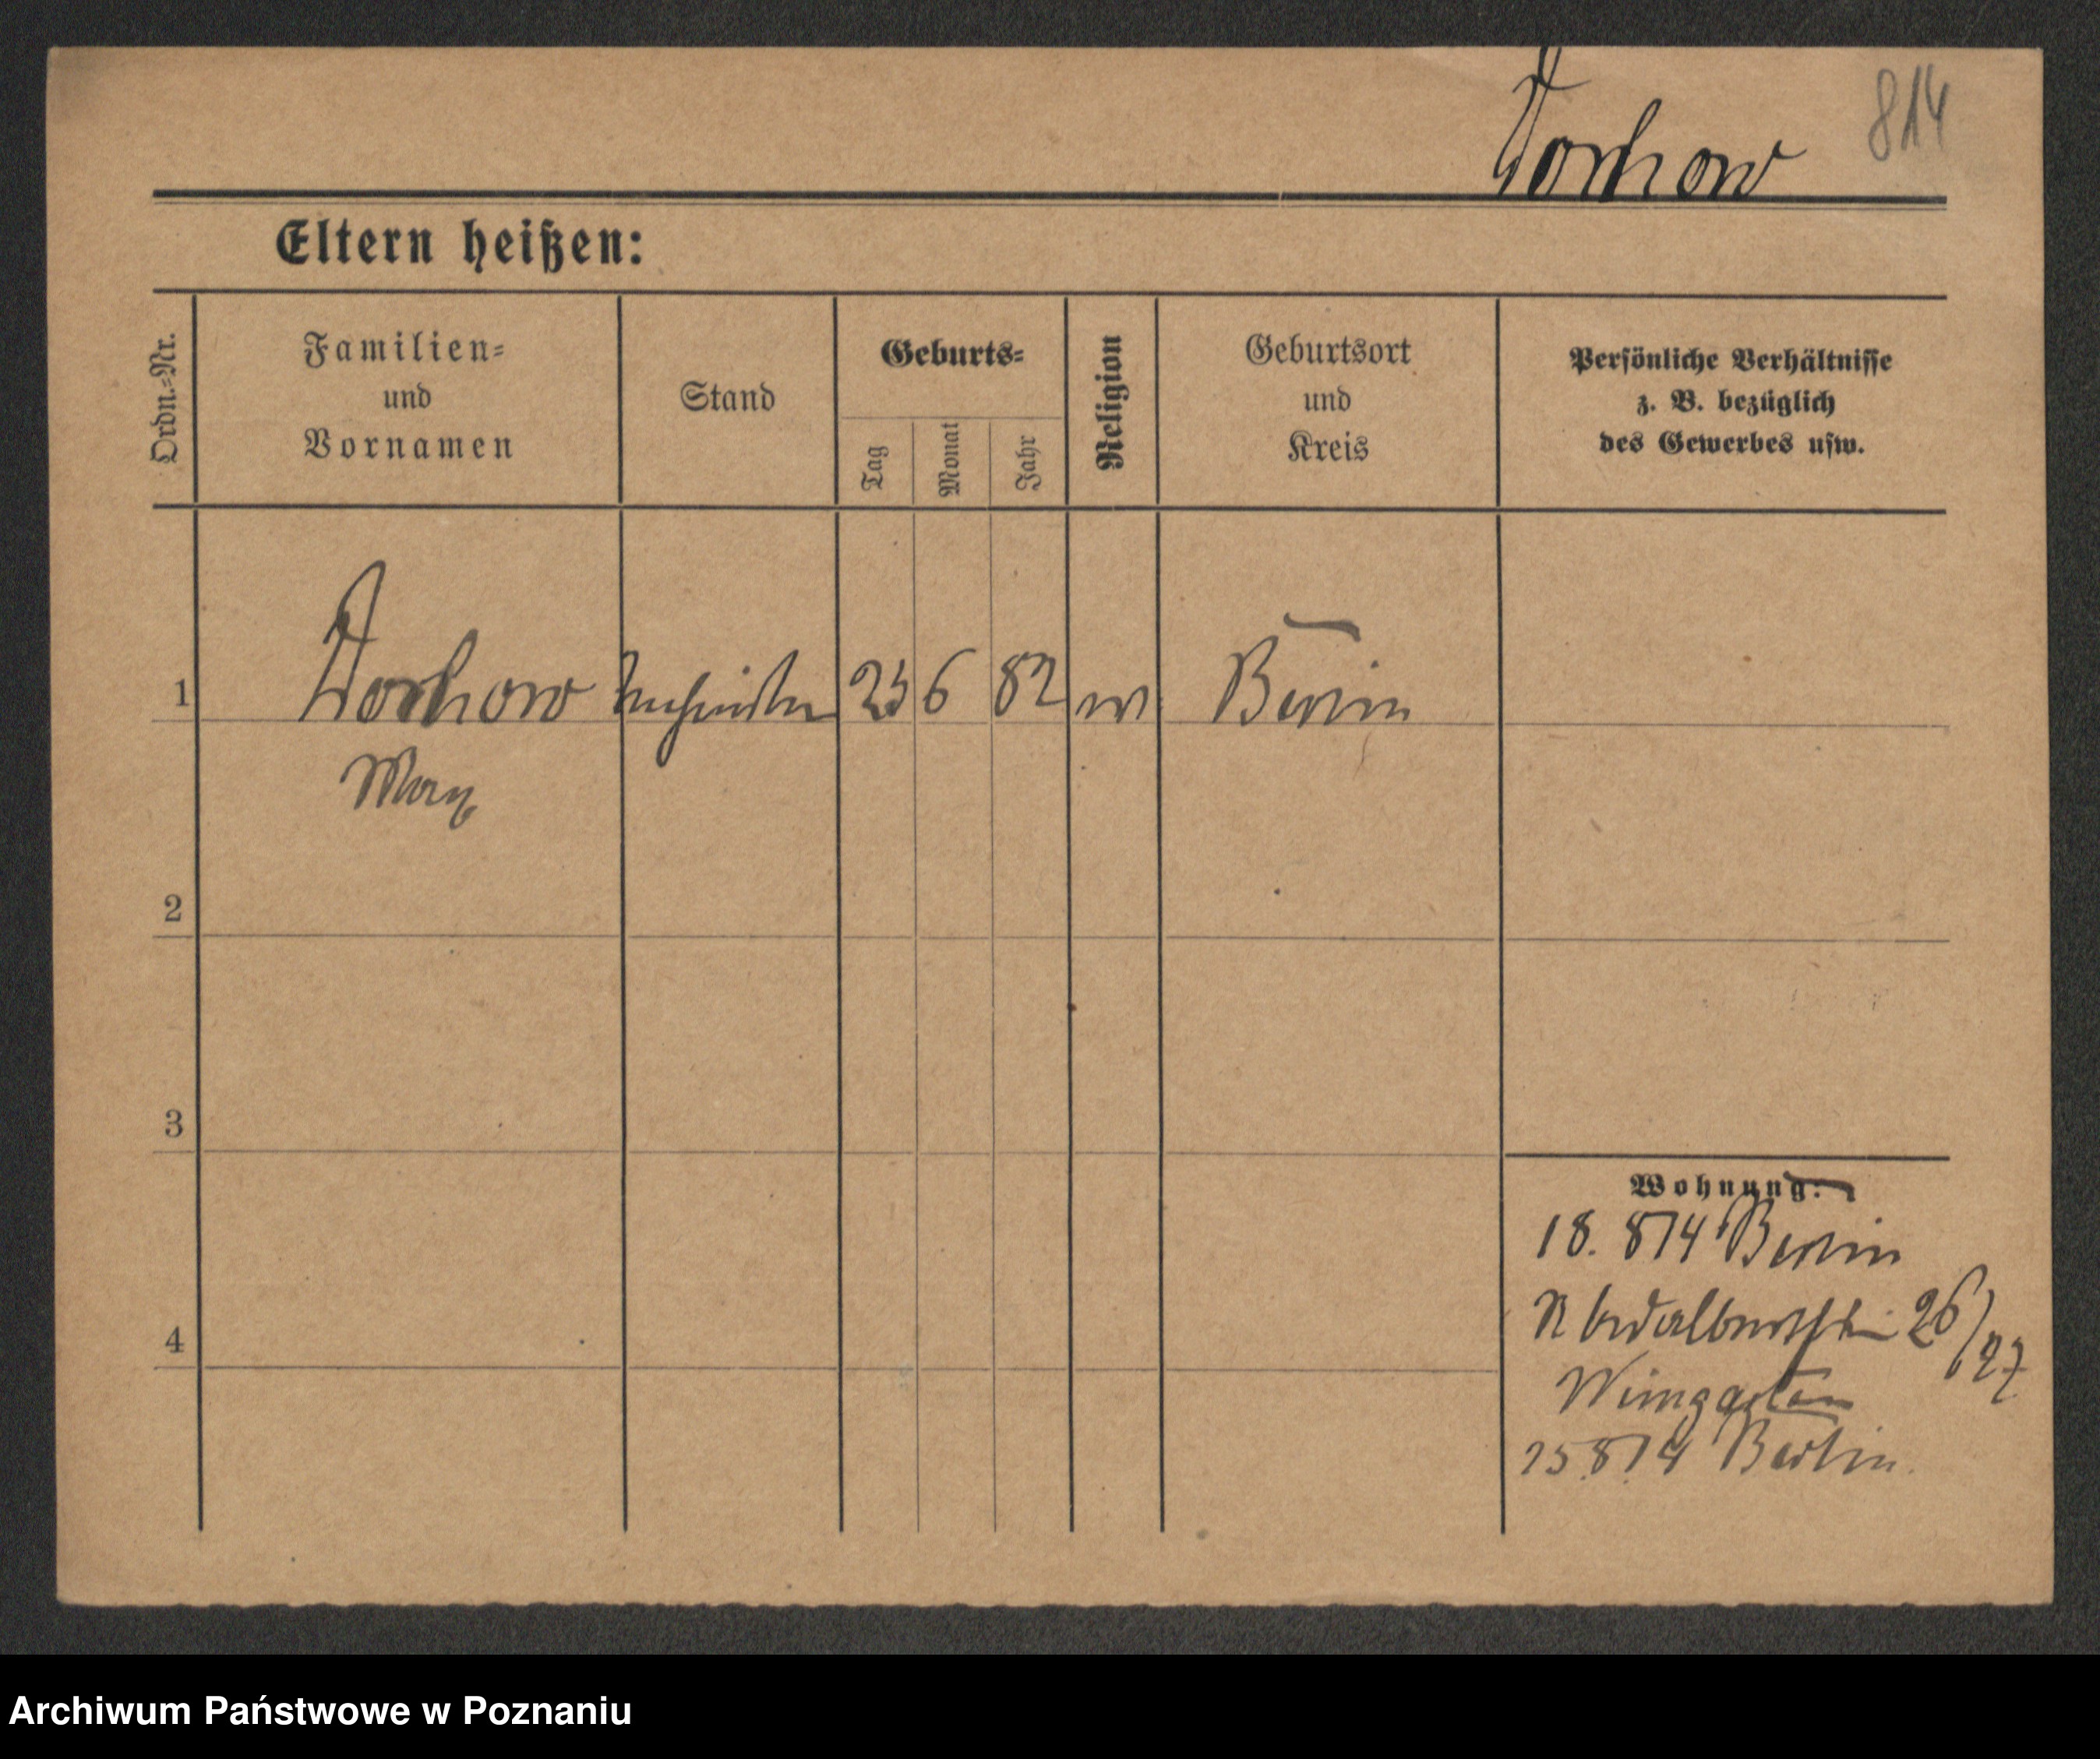 814
Dorhow
Eltern heißen:
Ordn.=Nr.
Familien=
und
Vornamen
Stand
Geburts=
Tag
Monat
Jahr
Religion
Geburtsort
und
Kreis
Persönliche Verhältnisse
z. B. bezüglich
des Gewerbes usw.
1
Dorhow
23 6 82
Berlin
Max
2
3
4
Wohnung:
18. 8 14 Berlin
26/27
25.8.14 Berlin.
Archiwum Państwowe w Poznaniu